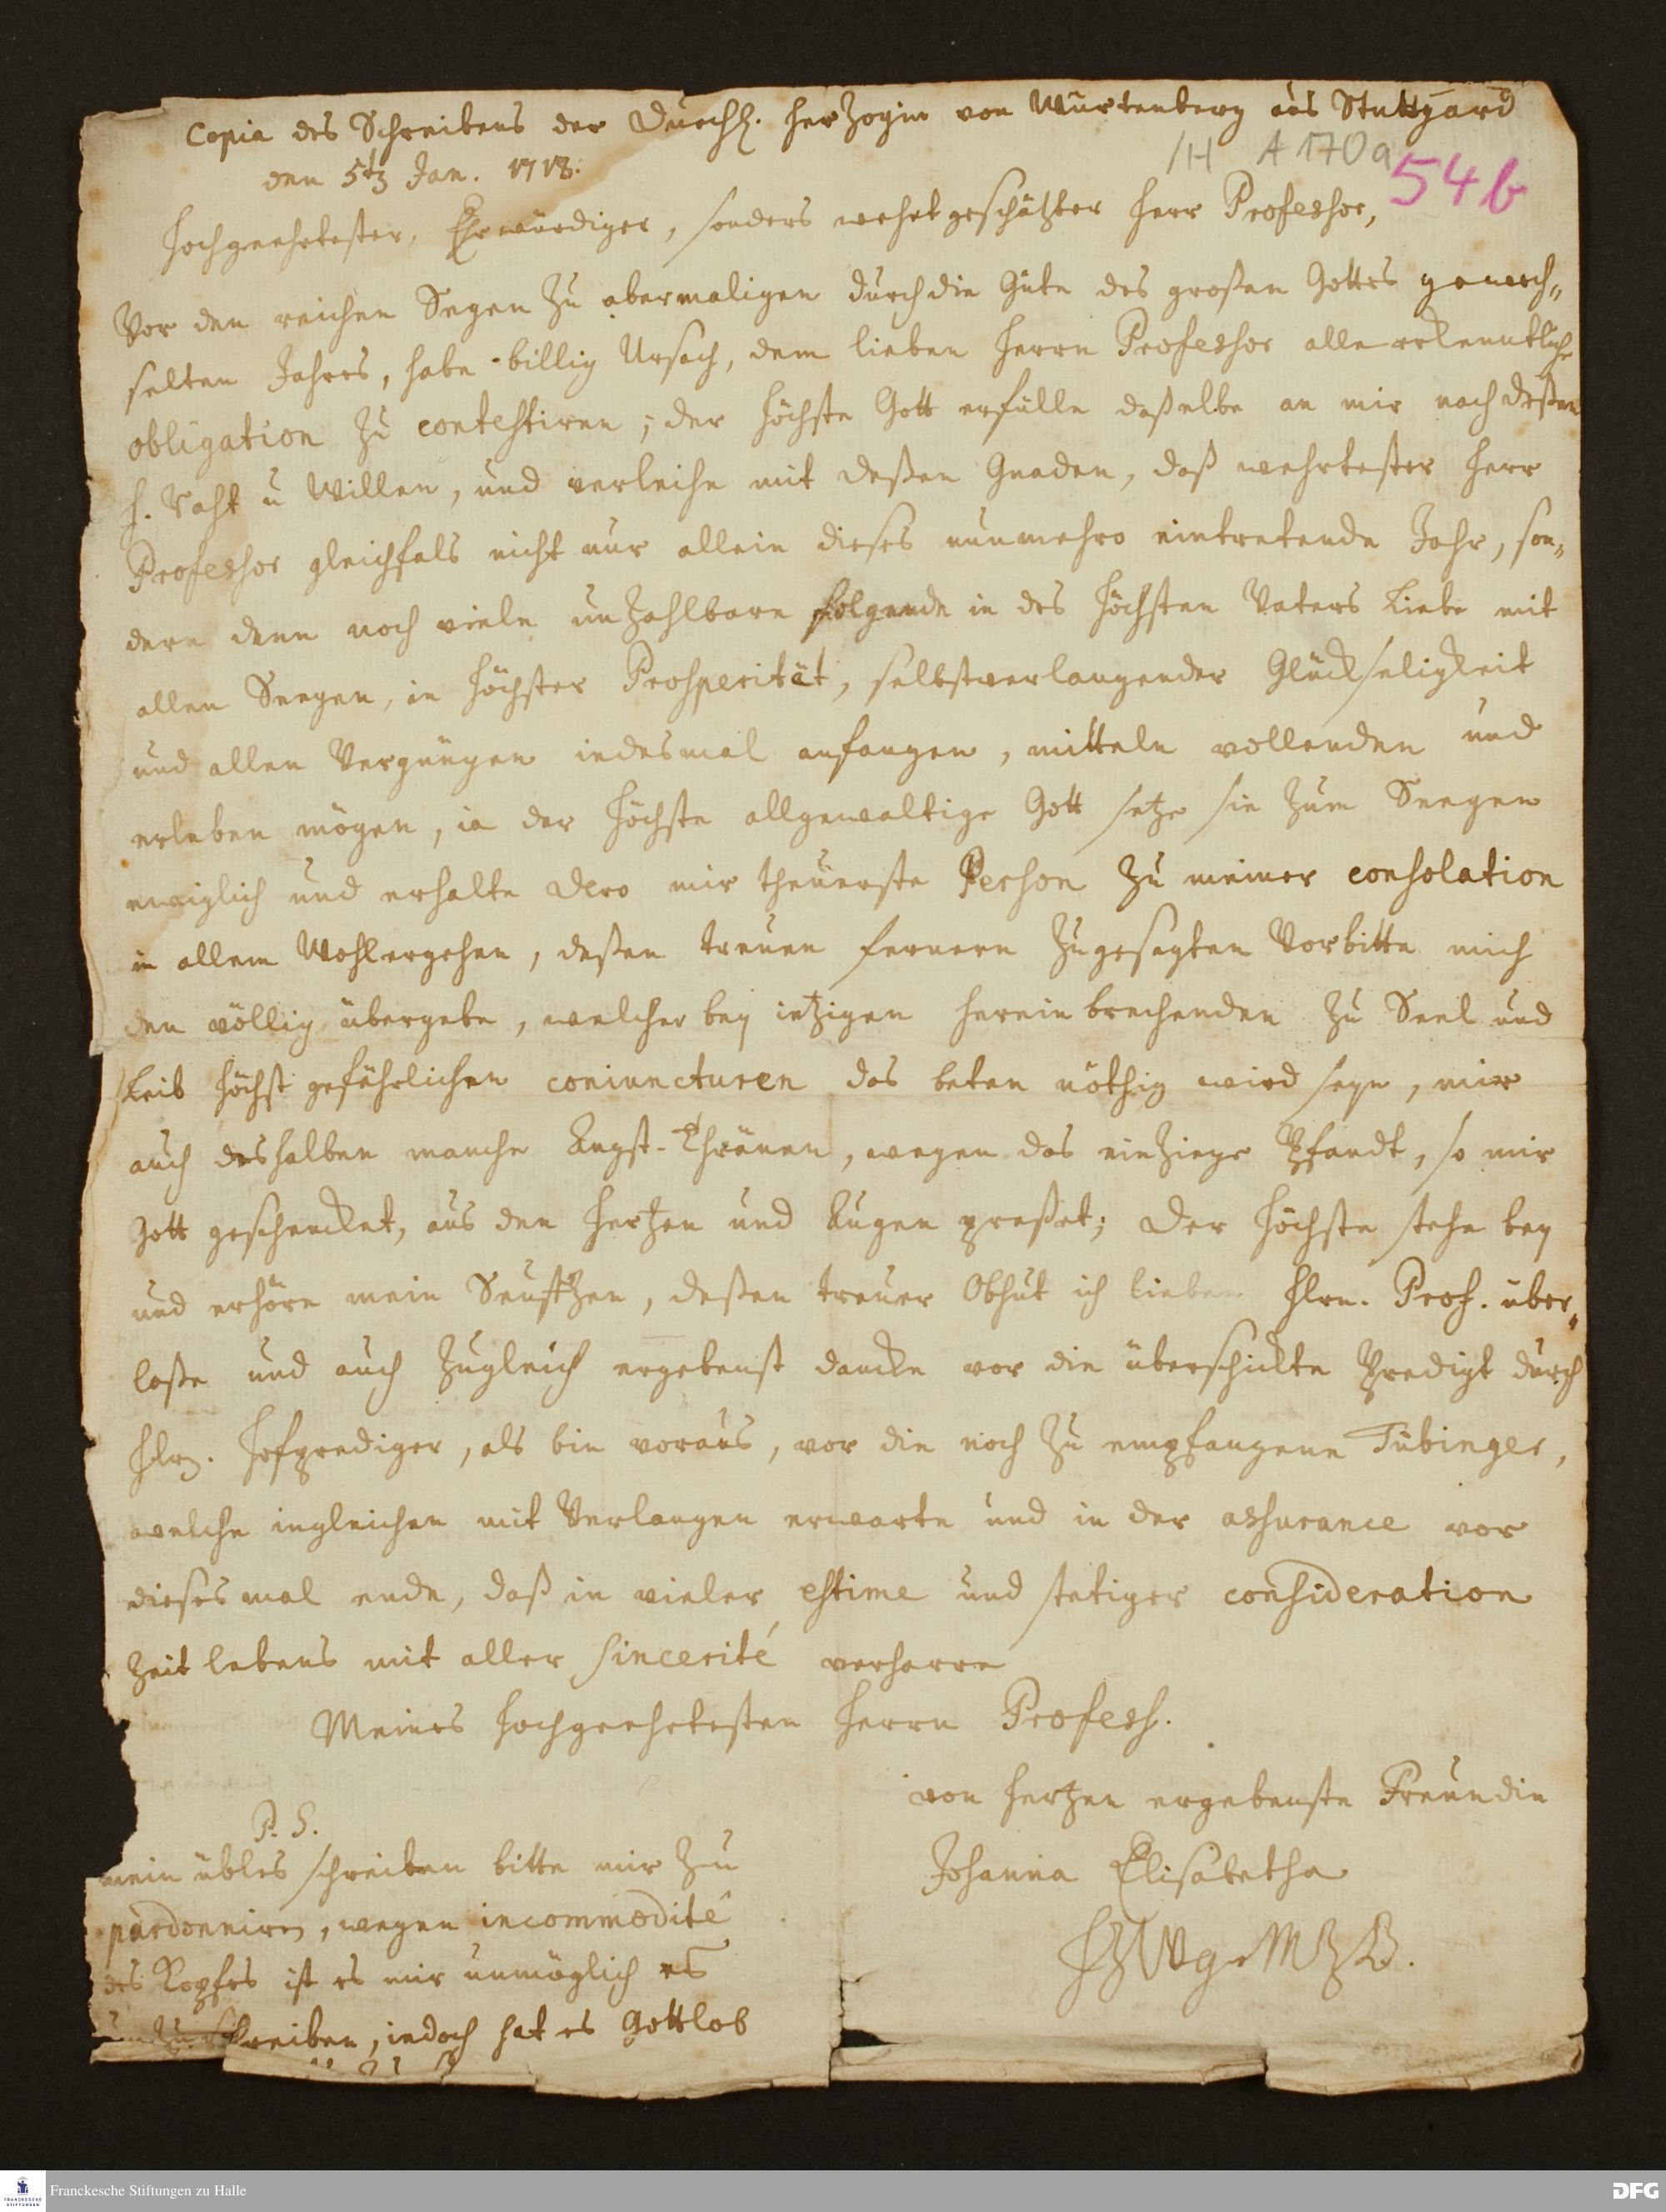 Copia des Schreibens der Durchl. Herzogin von Würtenberg aus Stuttgard
/H A 170a
den 5t3 Jan. 1718.
54b
Hochgeehrtester, Ehrwürdiger, sonders wehrtgeschätzter Herr Professor,
Vor den reichen Segen zu abermaligen durch die Güte des großen Gottes gewech„
selten Jahres, habe billig Ursach, dem lieben Herrn Professor alle erkenntliche
obligation zu contestiren; der Höchste Gott erfülle daßelbe an mir nach deßen
h. Raht u Willen, und verleihe mit deßen Gnaden, daß wehrtester Herr
Professor gleichfals nicht nur allein dieses nunmehro eintretende Jahr, son„
dern denn noch viele unzahlbare folgende in des Höchsten Vaters Liebe mit
allen Seegen, in höchster Prosperität, selbstverlangender Glückseligkeit
und allen Vergnügen iedesmal anfangen, mitteln vollenden und
erleben mögen, ia der Höchste allgewaltige Gott setze sie zum Seegen
ewiglich und erhalte dero mir theuerste Person zu meiner consolation
in allem Wohlergehen, deßen treuen fernern zugesagten Vorbitte mich
den völlig übergebe, welcher bey ietzigen hereinbrechenden zu Seel und
Leib höchst gefährlichen coniuncturen das beten nöthig wird seyn, mir
auch deshalben manche Angst-Thränen, wegen das einzige Pfandt, so mir
Gott geschencket, aus den Hertzen und Augen preßet; der Höchste stehe bey
und erhöre mein Seufftzen, deßen treuer Obhut ich lieben Hlrn. Prof. über„
laße und auch zugleich ergebenst dancke vor die überschickte Predigt durch
Hlrn. Hofprediger, als bin voraus, vor die noch zu empfangene Tübinger,
welche ingleichen mit Verlangen erwarte und in der assurance vor
diesesmal ende, daß in vieler estime und stetiger consideration
Zeit lebens mit aller sincerité verharre
Meines Hochgeehrtesten Herrn Profess.
von Hertzen ergebenste Freundin
Johanna Elisabetha
HZWgeMZB.
P. S.
mein übles schreiben bitte mir zu
pardonniren, wegen incommodité
des Kopfes ist es mir unmöglich es
schreiben, iedoch hat es Gottlob
Franckesche Stiftungen zu Halle
FRANCKESCHE STIFTUNGEN
DFG